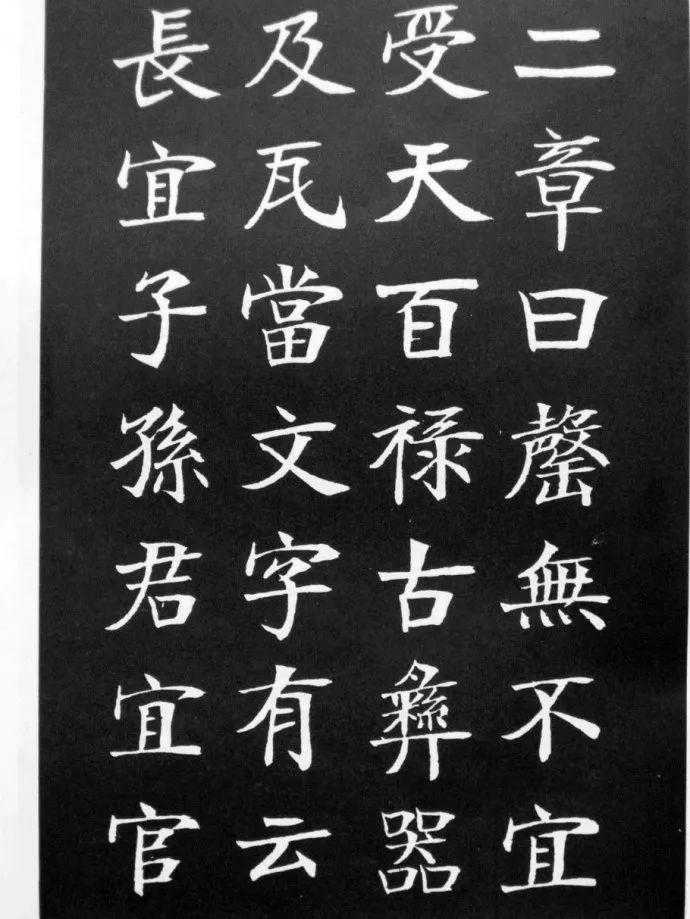 二章曰罄無不宜
受天百祿古彝器
及瓦當文字有云
長宜子孫君宜官